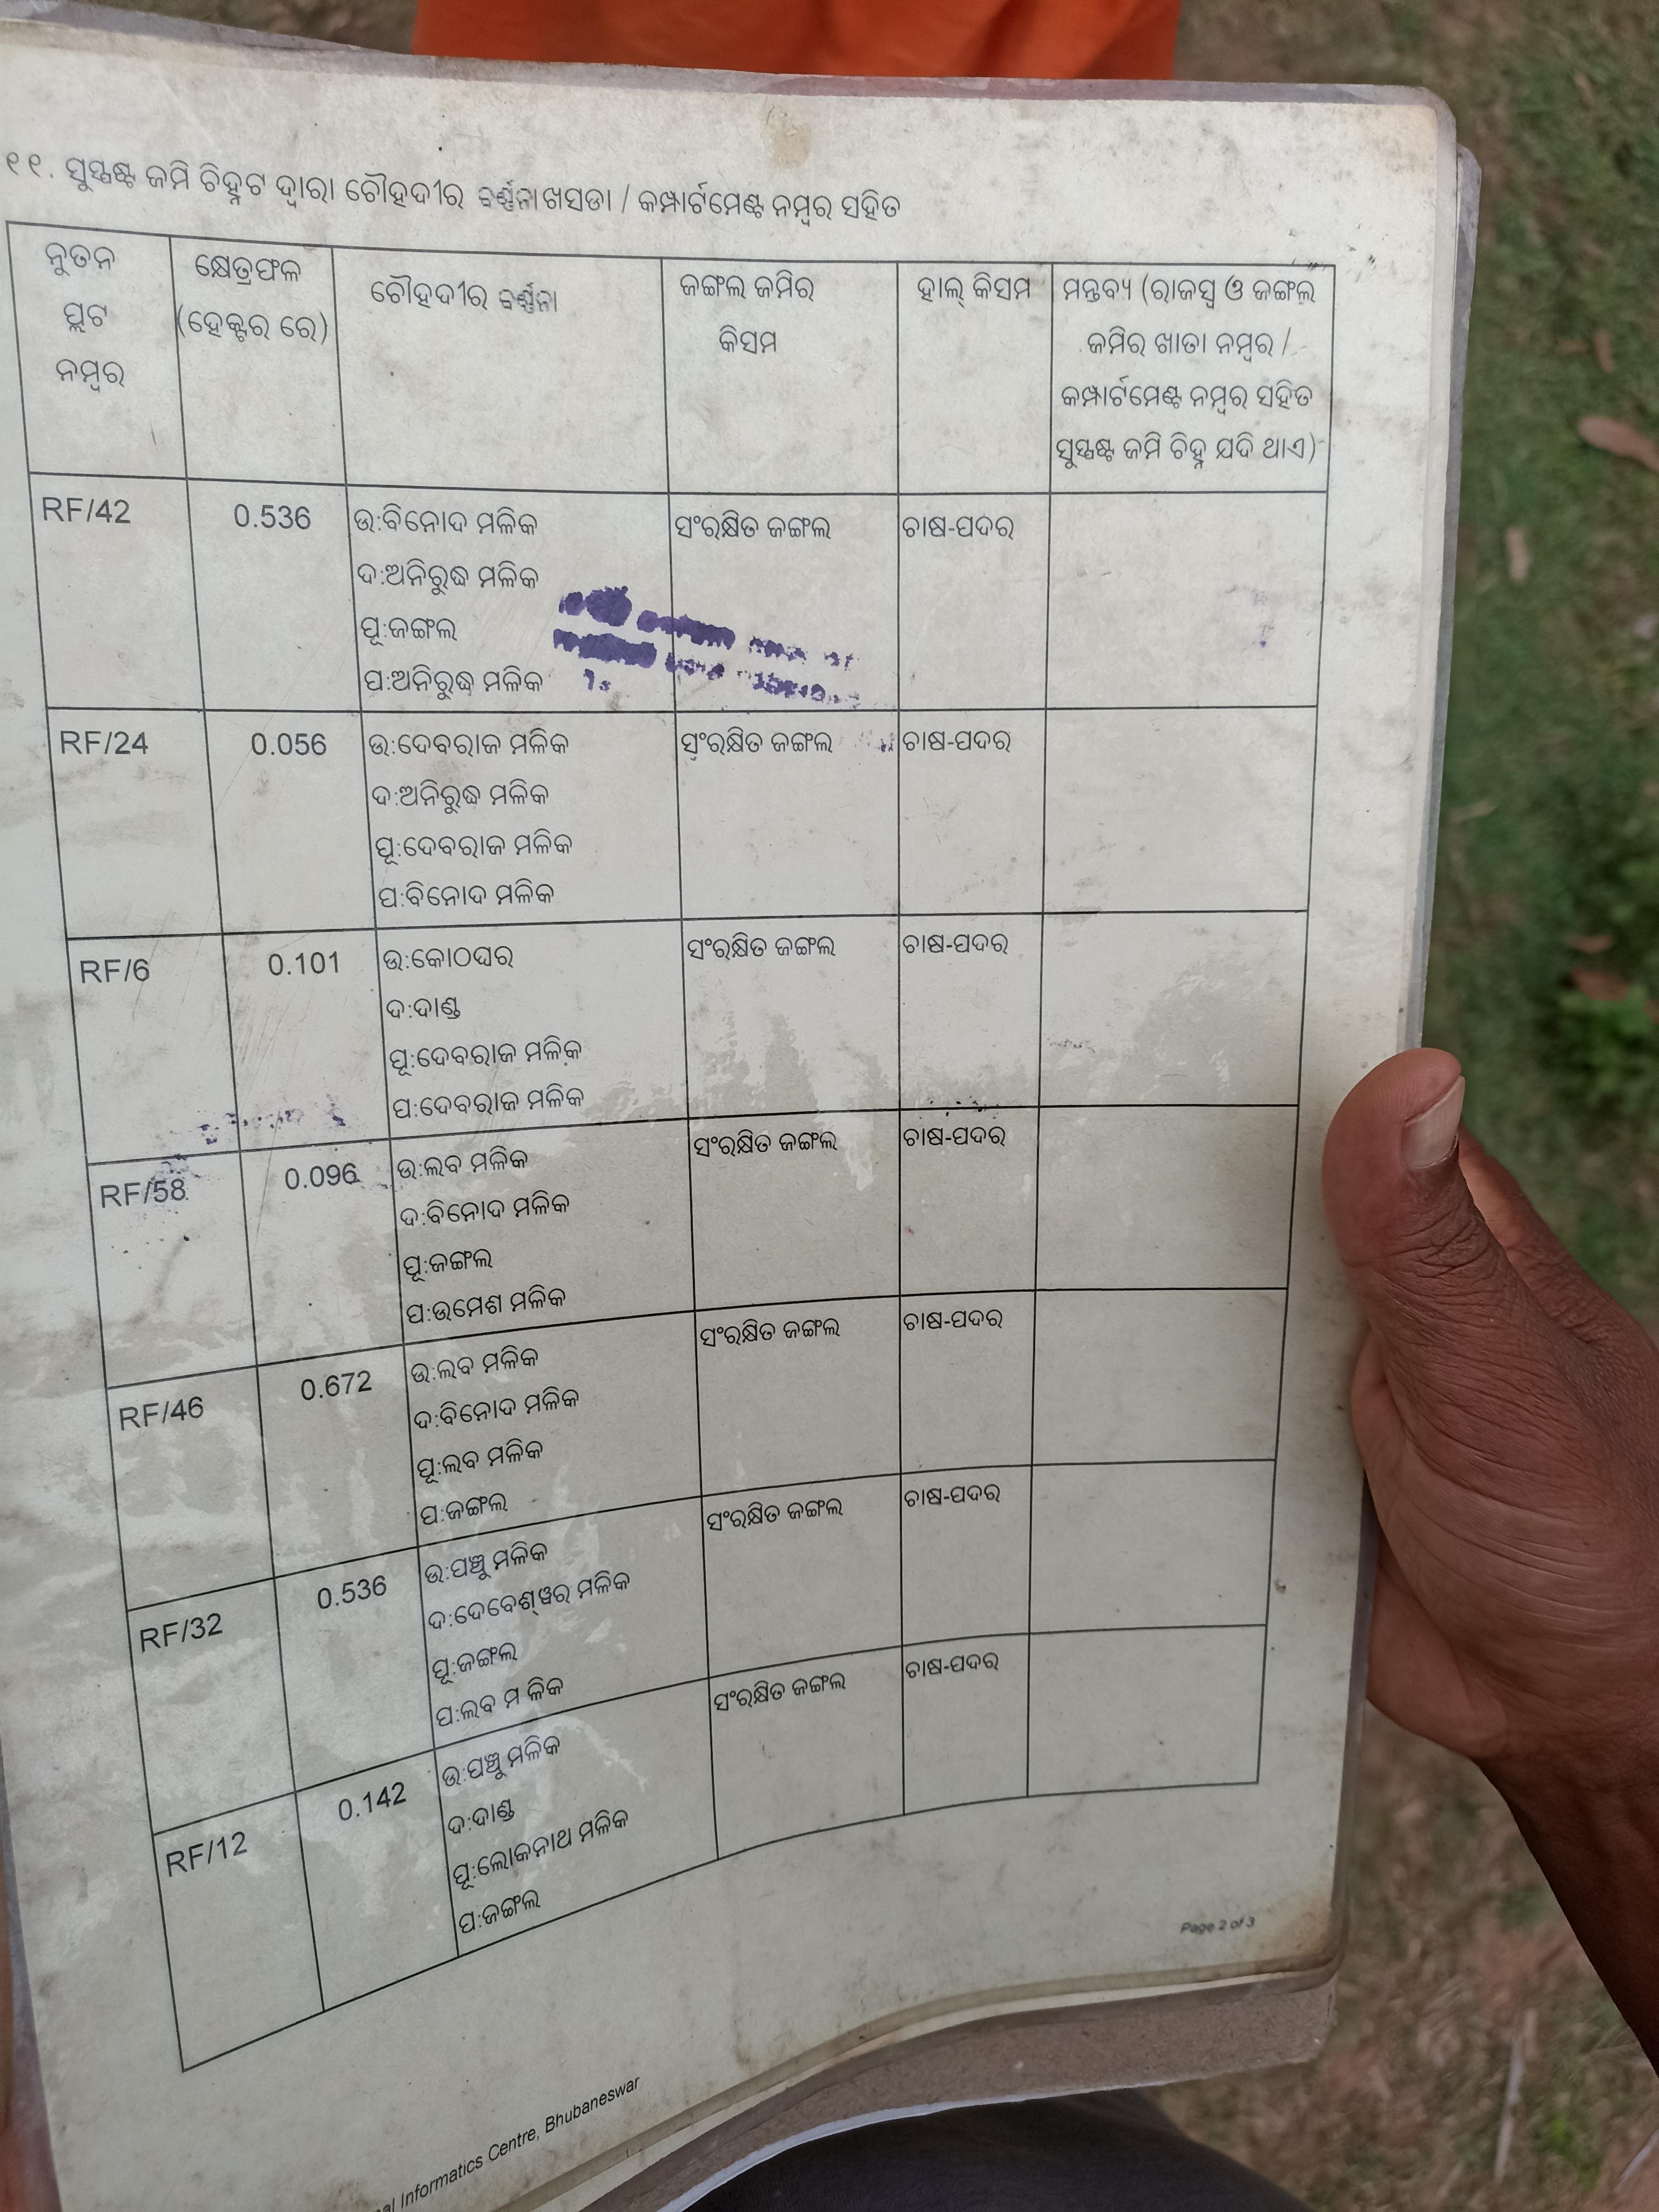 ୧୧. ସୁସ୍ପଷ୍ଟ ଜମି ଚିହ୍ନଟ ଦ୍ୱାରା ଚୌହଦୀର ବର୍ଣ୍ଣନା ଖସଡା / କମ୍ପାର୍ଟମେଣ୍ଟ ନମ୍ବର ସହିତ
ନୁତନ ପ୍ଲଟ ନମ୍ବର
କ୍ଷେତ୍ରଫଳ (ହେକ୍ଟର ରେ)
ଚୌହଦୀର ବର୍ଣ୍ଣନା
ଜଙ୍ଗଲ ଜମିର କିସମ
ହାଲ୍ କିସମ
ମନ୍ତବ୍ୟ (ରାଜସ୍ୱ ଓ ଜଙ୍ଗଲ
ଜମିର ଖାତା ନମ୍ବର /
କମ୍ପାର୍ଟମେଣ୍ଟ ନମ୍ବର ସହିତ
ସୁସ୍ପଷ୍ଟ ଜମି ଚିହ୍ନ ଯଦି ଥାଏ)
RF/42 0.536 ଉ:ବିନୋଦ ମଳିକ ସଂରକ୍ଷିତ ଜଙ୍ଗଲ ଚାଷ-ପଦର
ଦ:ଅନିରୁଦ୍ଧ ମଳିକ
ପୂ:ଜଙ୍ଗଲ
ପ:ଅନିରୁଦ୍ଧ ମଳିକ
RF/24 0.056 ଉ:ଦେବରାଜ ମଳିକ ସଂରକ୍ଷିତ ଜଙ୍ଗଲ ଚାଷ-ପଦର
ଦ:ଅନିରୁଦ୍ଧ ମଳିକ
ପୂ:ଦେବରାଜ ମଳିକ
ପ:ବିନୋଦ ମଳିକ
RF/6 0.101 ଉ:କୋଠଘର ସଂରକ୍ଷିତ ଜଙ୍ଗଲ ଚାଷ-ପଦର
ଦ:ଦାଣ୍ଡ
ପୂ:ଦେବରାଜ ମଳିକ
ପ:ଦେବରାଜ ମଳିକ
RF/58 0.096 ଉ:ଲବ ମଳିକ ସଂରକ୍ଷିତ ଜଙ୍ଗଲ ଚାଷ-ପଦର
ଦ:ବିନୋଦ ମଳିକ
ପୂ:ଜଙ୍ଗଲ
ପ:ଉମେଶ ମଳିକ
RF/46 0.672 ଉ:ଲବ ମଳିକ ସଂରକ୍ଷିତ ଜଙ୍ଗଲ ଚାଷ-ପଦର
ଦ:ବିନୋଦ ମଳିକ
ପୂ:ଲବ ମଳିକ
ପ:ଜଙ୍ଗଲ
RF/32 0.536 ଉ:ପଞ୍ଚୁ ମଳିକ ସଂରକ୍ଷିତ ଜଙ୍ଗଲ ଚାଷ-ପଦର
ଦ:ଦେବେଶ୍ୱର ମଳିକ
ପୂ:ଜଙ୍ଗଲ
ପ:ଲବ ମ ଳିକ
RF/12 0.142 ଉ:ପଞ୍ଚୁ ମଳିକ ସଂରକ୍ଷିତ ଜଙ୍ଗଲ ଚାଷ-ପଦର
ଦ:ଦାଣ୍ଡ
ପୂ:ଲୋକନାଥ ମଳିକ
ପ:ଜଙ୍ଗଲ
Page 2 of 3
Informatics Centre, Bhubaneswar